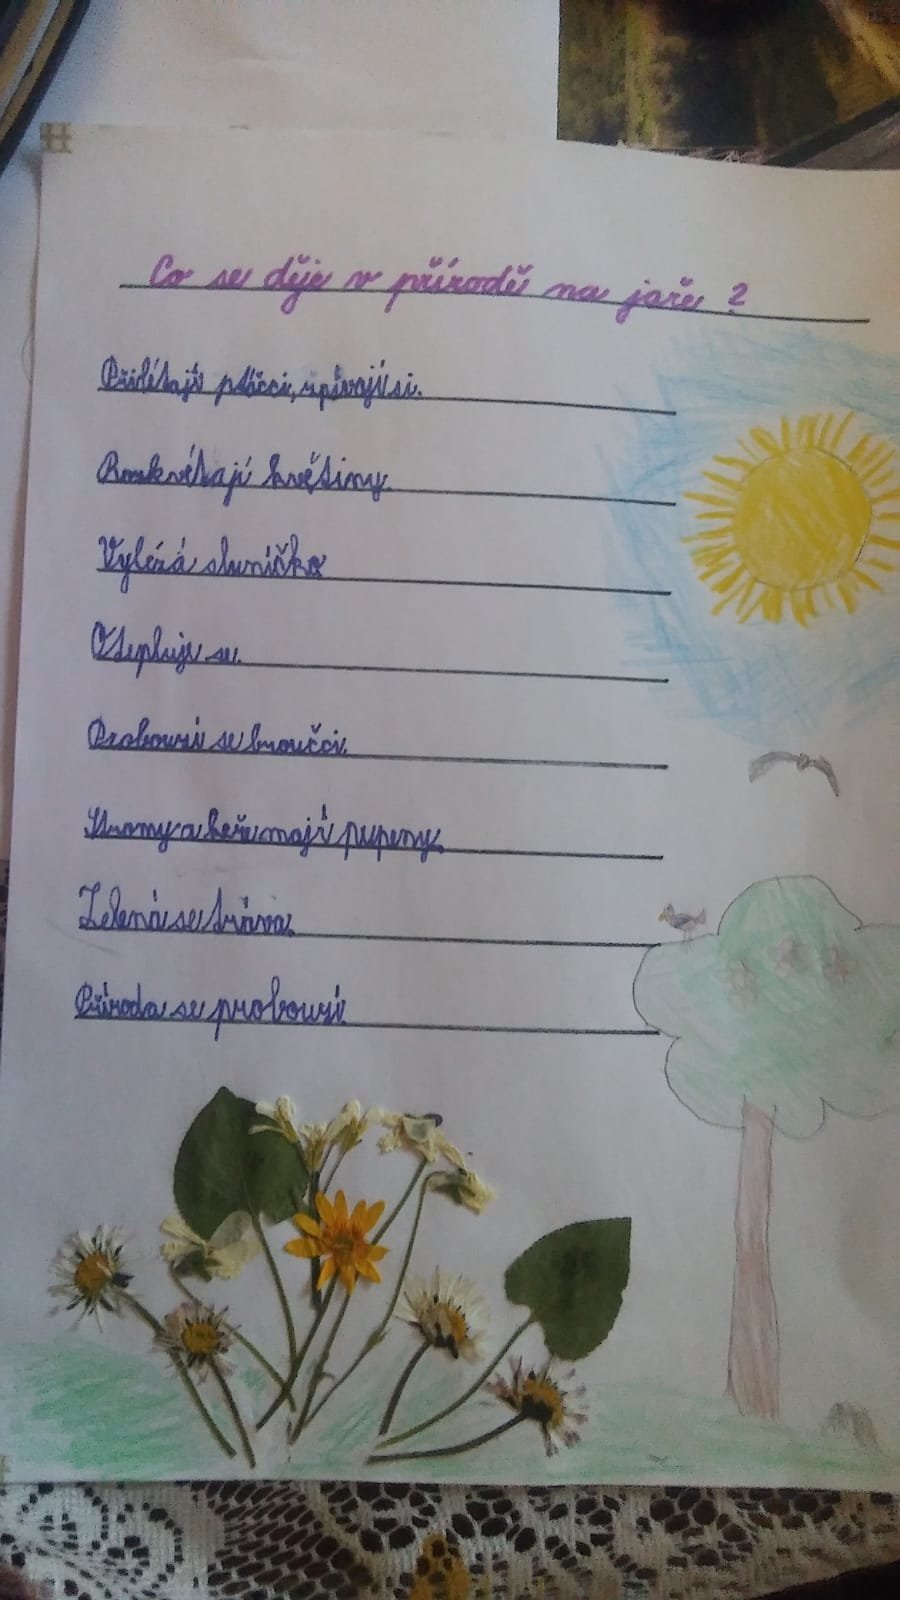 Co se děje v přírodě na jaře ?
Přilétají ptáčci, zpívají si.
Rozkvétají květiny.
Vylézá sluníčko
Otepluje se.
Probouzí se broučci.
Stromy a keře mají pupeny.
Zelená se tráva.
Příroda se probouzí